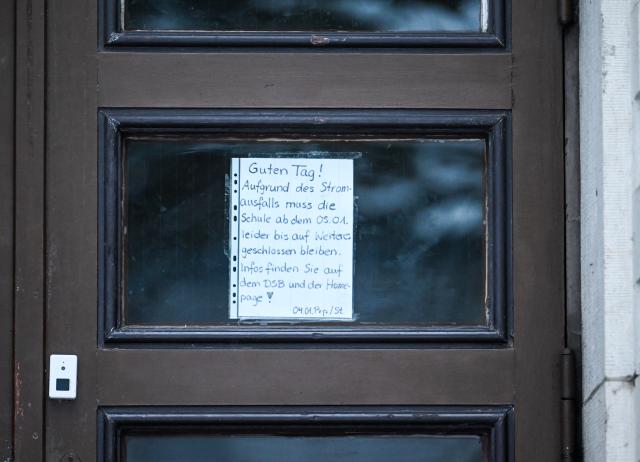 Guten Tag!
Aufgrund des Strom-
ausfalls muss die
Schule ab dem 05.01.
leider bis auf Weiteres
geschlossen bleiben.
Infos finden Sie auf
dem DSB und der Home-
page!
04.01. Prp./St